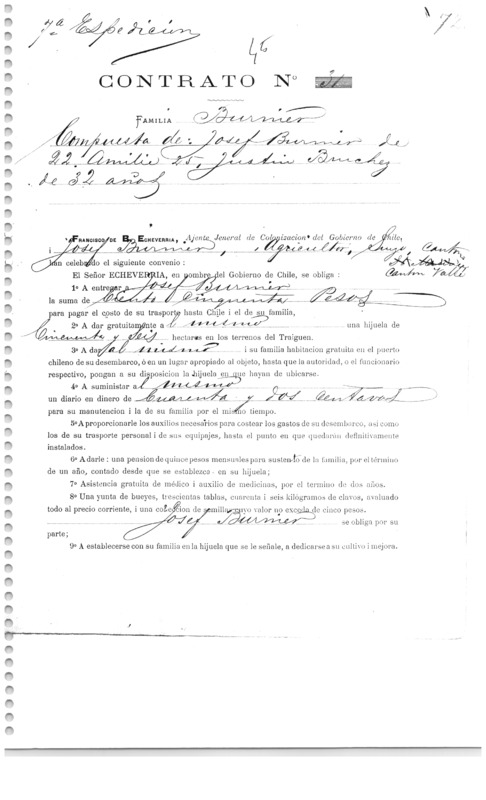 7ª Espedicion
46
CONTRATO Nº 31
FAMILIA Burnier
Compuesta de: Josef Burnier de
22. Amilie 25, Justin Bruchez
de 32 años
FRANCISCO DE B. ECHEVERRIA, Ajente Jeneral de Colonizacion del Gobierno de Chile,
i Josef Burnier, Agricultor, Suizo, Canton
Canton Valle
han celebrado el siguiente convenio:
El Señor ECHEVERRIA, en nombre del Gobierno de Chile, se obliga:
1º A entregar a Josef Burnier
la suma de Ciento Cinquenta Pesos
para pagar el costo de su trasporte hasta Chile i el de su familia,
2º A dar gratuitamente al mismo una hijuela de
Cincuenta y seis hectareas en los terrenos del Traiguen.
3º A dar al mismo i su familia habitacion gratuita en el puerto
chileno de su desembarco, ó en un lugar apropiado al objeto, hasta que la autoridad, o el funcionario
respectivo, pongan a su disposicion la hijuela en que hayan de ubicarse.
4º A suministar al mismo
un diario en dinero de Cuarenta y dos centavos
para su manutencion i la de su familia por el mismo tiempo.
5º A proporcionarle los auxilios necesarios para costear los gastos de su desembarco, así como
los de su trasporte personal i de sus equipajes, hasta el punto en que quedaran definitivamente
instalados.
6º A darle: una pension de quince pesos mensuales para sustento de la familia, por el término
de un año, contado desde que se establezca en su hijuela;
7º Asistencia gratuita de médico i auxilio de medicinas, por el termino de dos años.
8º Una yunta de bueyes, trescientas tablas, cuarenta i seis kilógramos de clavos, avaluado
todo al precio corriente, i una coleccion de semillas cuyo valor no exceda de cinco pesos.
Josef Burnier se obliga por su
parte;
9º A establecerse con su familia en la hijuela que se le señale, a dedicarse a su cultivo i mejora.